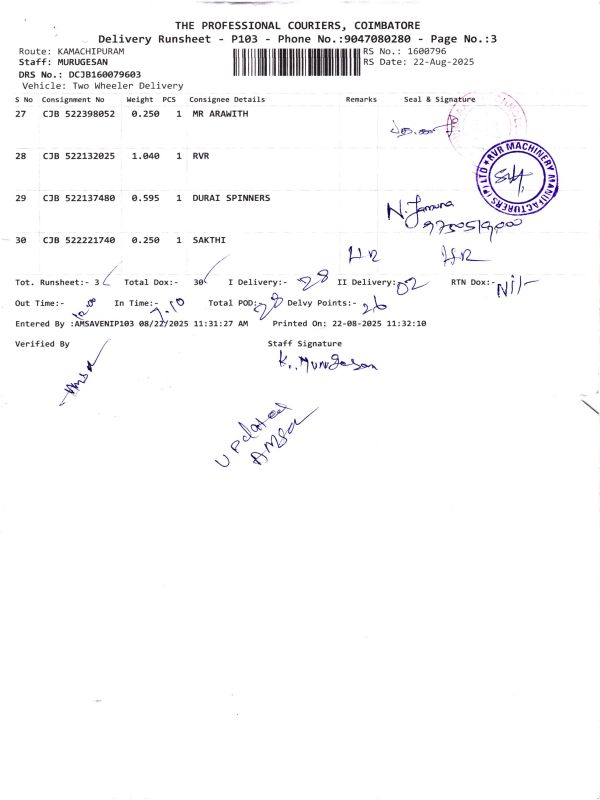 THE PROFESSIONAL COURIERS, COIMBATORE
Delivery Runsheet - P103 - Phone No.:9047080280 - Page No.:3
Route: KAMACHIPURAM RS No.: 1600796
Staff: MURUGESAN RS Date: 22-Aug-2025
DRS No.: DCJB160079603
Vehicle: Two Wheeler Delivery
S No Consignment No Weight PCS Consignee Details Remarks Seal & Signature
27 CJB 522398052 0.250 1 MR ARAWITH
28 CJB 522132025 1.040 1 RVR
RVR MACHINERY MANUFACTURERS (P) LTD
29 CJB 522137480 0.595 1 DURAI SPINNERS N. Jamuna
30 CJB 522221740 0.250 1 SAKTHI
Tot. Runsheet:- 3 Total Dox:- 30 I Delivery:- 28 II Delivery:- 02 RTN Dox:- Nil-
Out Time:- 10.00 In Time:- 7.10 Total POD:- 28 Delvy Points:- 26
Entered By :AMSAVENIP103 08/22/2025 11:31:27 AM Printed On: 22-08-2025 11:32:10
Verified By Staff Signature
Amsa K. Murugesan
Updated
Amsa